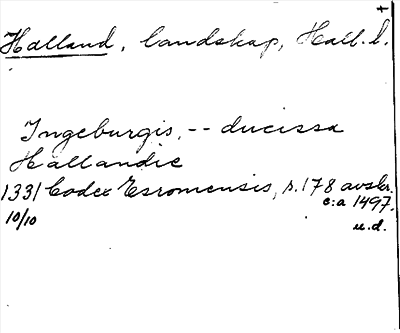 +
Halland, landskap, Hall. l.
Ingeburgis, -- ducissa
Hallandie
1331 Codex Esromensis, s. 178 avskr.
10/10 c:a 1497.
u.d.